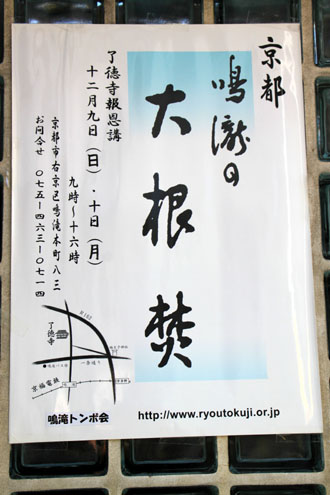 京都
鳴瀧の
大根焚
了徳寺報恩講
十二月九日(日)・十日(月)
九時~十六時
京都市右京区鳴滝本町八三
お問合せ 〇七五-四六三-〇七一四
R162
了徳寺
一条通り
京福電鉄
鳴滝
鳴滝トンボ会
http://www.ryoutokuji.or.jp